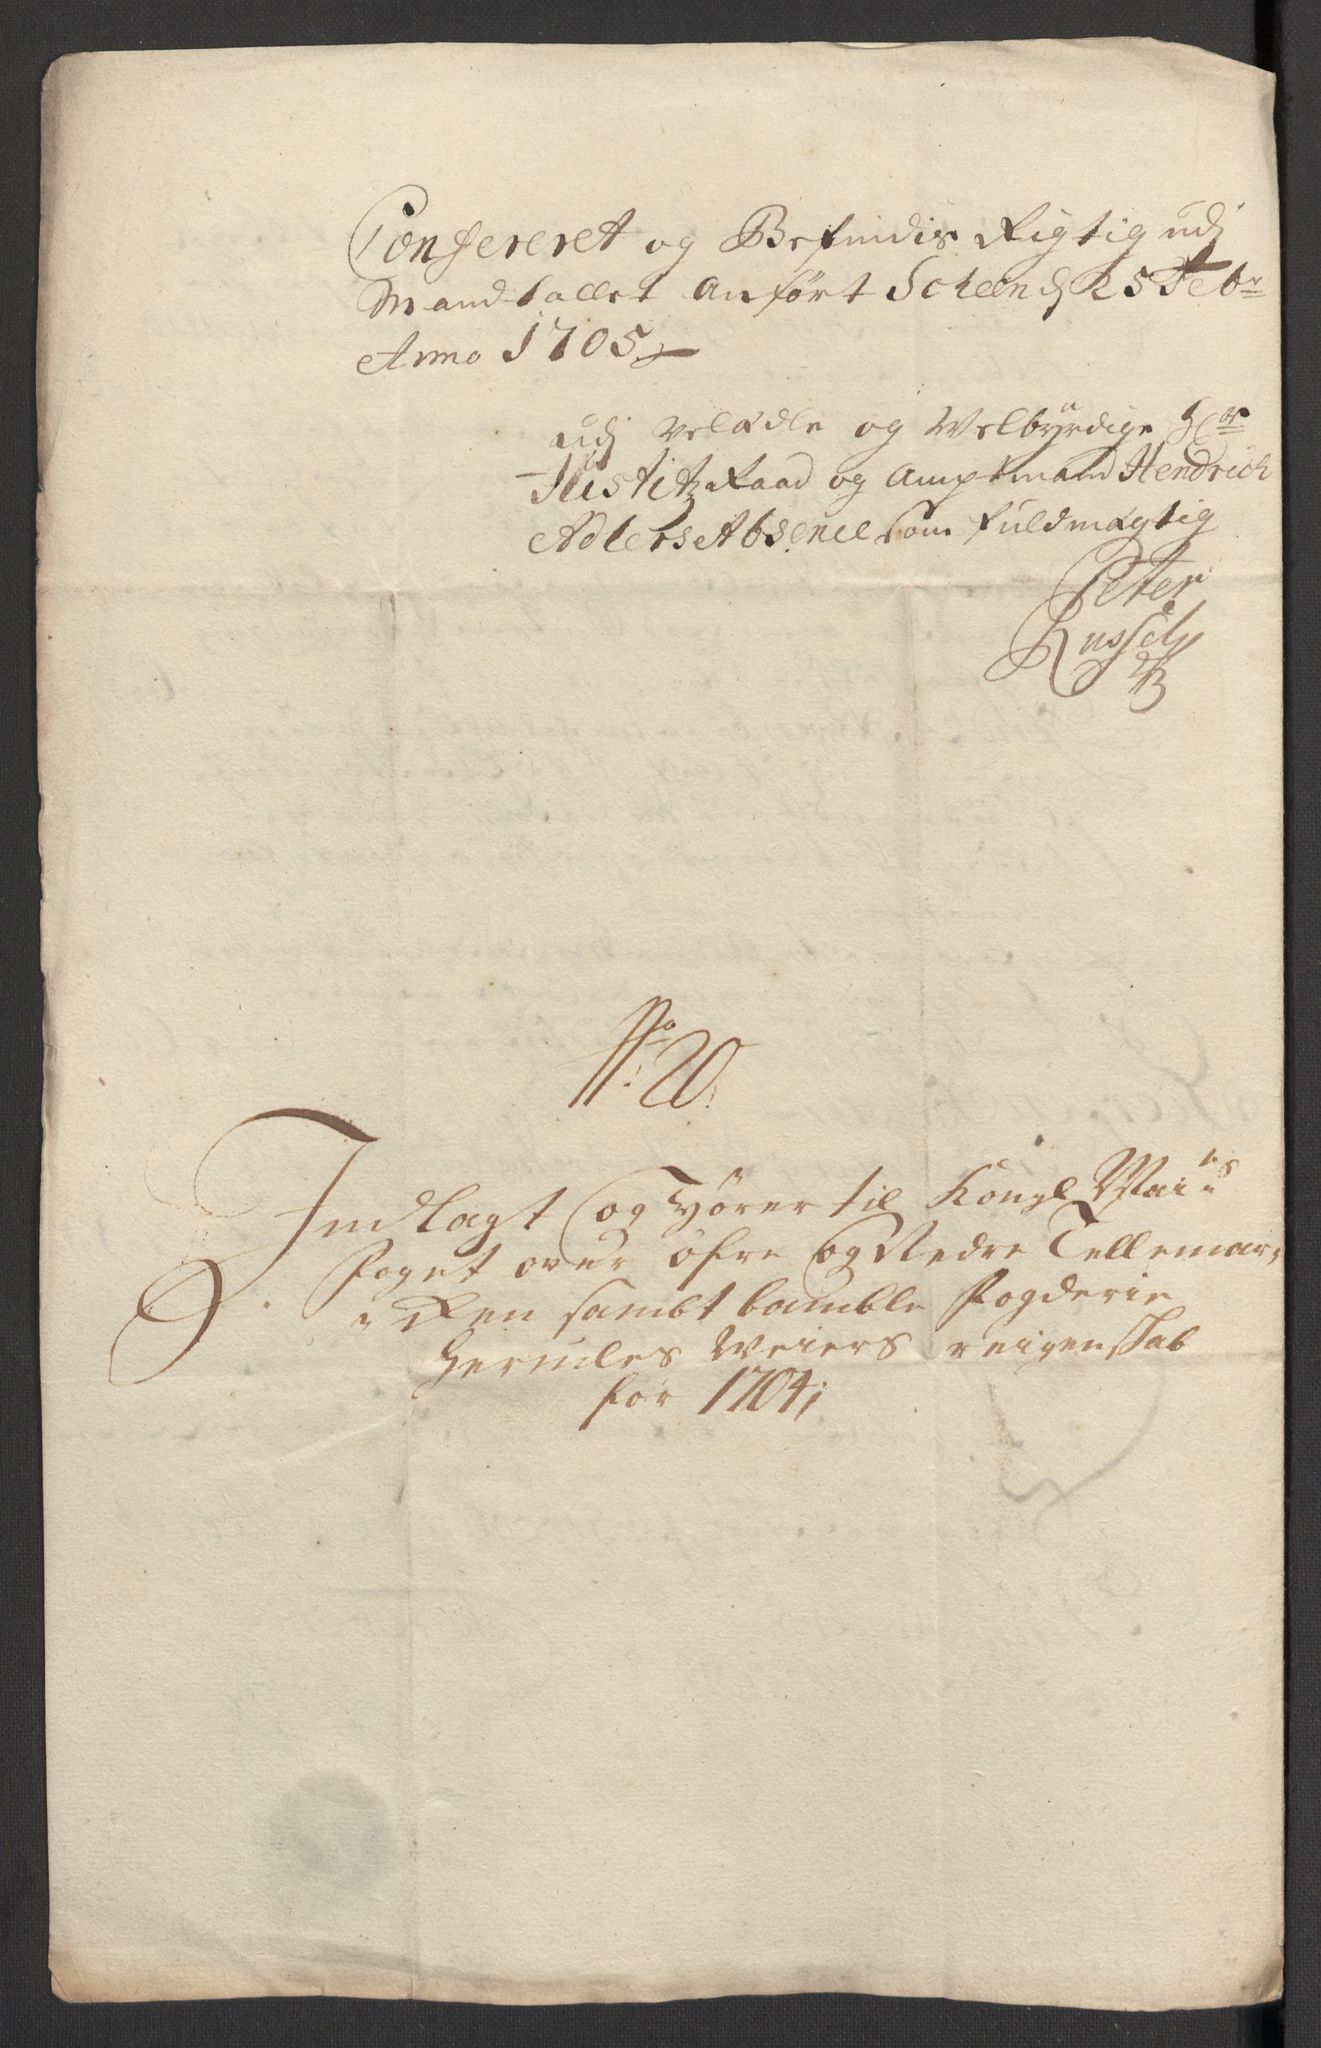 Confereret og Befindis Rigtig udj
Mandtallet Anfört Scheen d 25 Febr
Anno 1705
udj Velædle og Welbÿrdige Hr
Justitz Raad og Amptmand Hendrich
Adlers Absence som fuldmægtig
Peter
No 20.
Indlagt og Hörer til Kongl Maits
Foget over Öfre og Nedre Tellemar,,
,,Ken sambt bamble Fogderie
Hercules Weiers reigenskab
for 1704;